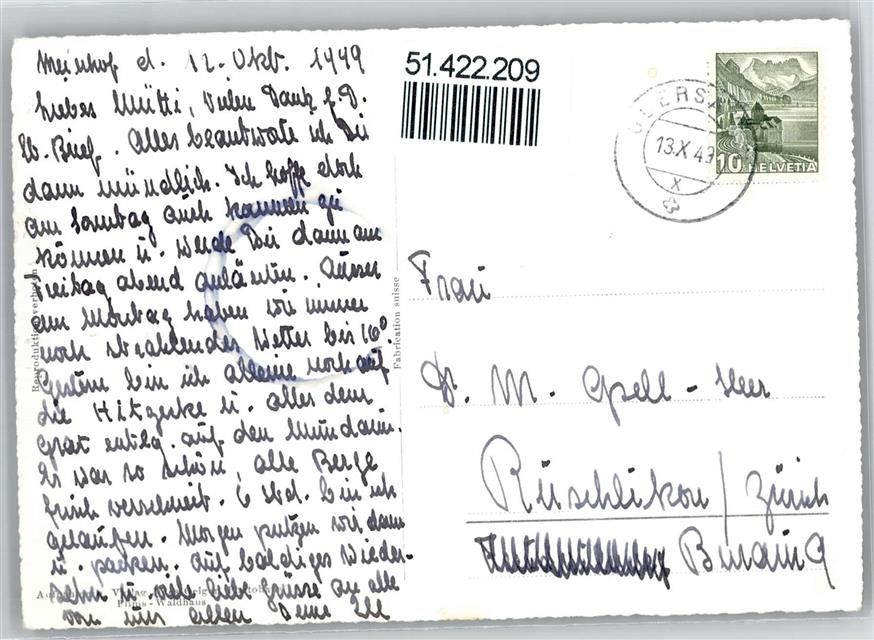 Meierhof d. 12. Okt. 1949
Liebes Mütti, Vielen Dank f. D.
lb. Brief. Alles beantworte ich Dir
dann mündlich. Ich hoffe doch
am Sonntag auch kommen zu
können u. werde Dir dann am
Freitag abend anläuten. Ausser
am Montag haben wir immer
noch strahlendes Wetter bis 10°
Gestern bin ich alleine noch auf
die Hitzeke u. alles dem
Grat entlg. auf den Mundaun.
Es war so schön, alle Berge
frisch verschneit. 6 Std. bin ich
gelaufen. Morgen putzen wir dann
u. packen. Auf baldiges Wieder-
sehen u. viele liebe Grüsse an alle
von uns allen Deine
Reproduktion verboten
Verlag
Flims - Waldhaus
Fabrication suisse
51.422.209
OBERSAXEN
13.X.49
X
10 HELVETIA
Frau
Dr. M. Gsell - Heer
Rüschlikon / Zürich